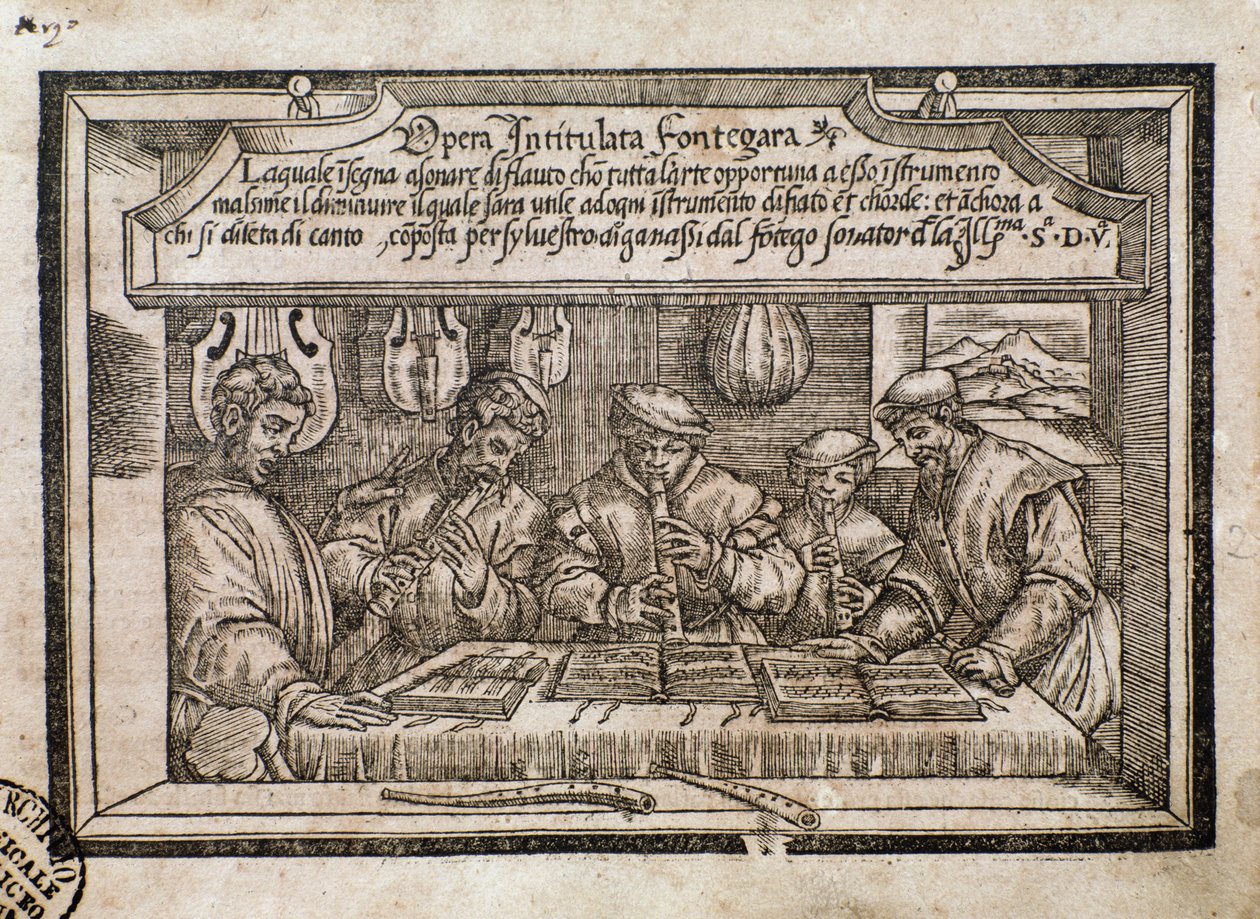 Opera Intitulata Fontegara
Laquale ĩsegna a sonare di flauto chõ tutta l'arte opportuna a esso ĩstrumento
massime il diminuire il quale sara utile ad ogni ĩstrumento di fiato et chorde: et ãchora a
chi si dileta di canto, cõposta per sylvestro di ganassi dal fõtego sonator d̃ la Illma. Sa. D. Va.
RCHIVIO
SICALE
ICEO